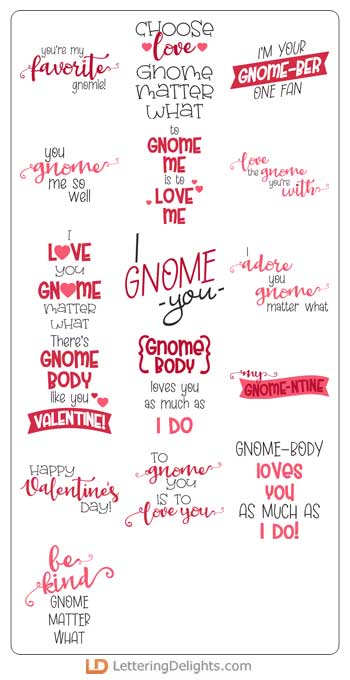 you're my
favorite
gnomie!
CHOOSE
love
Gnome
MATTER
WHAT
I'M YOUR
GNOME-BER
ONE FAN
you
gnome
me so
well
to
GNOME
ME
is to
LOVE
ME
love
the gnome
you're
with
I
LOVE
you
GNOME
MATTER
WHAT
I
GNOME
-you-
I
adore
you
gnome
matter what
There's
GNOME
BODY
like you
VALENTINE!
{Gnome
BODY}
loves you
as much as
I DO
my
GNOME-NTINE
HAPPY
Valentine's
DAY!
TO
gnome
YOU
IS TO
love you
GNOME-BODY
loves
you
AS MUCH AS
I DO!
be
kind
GNOME
MATTER
WHAT
LD LetteringDelights.com